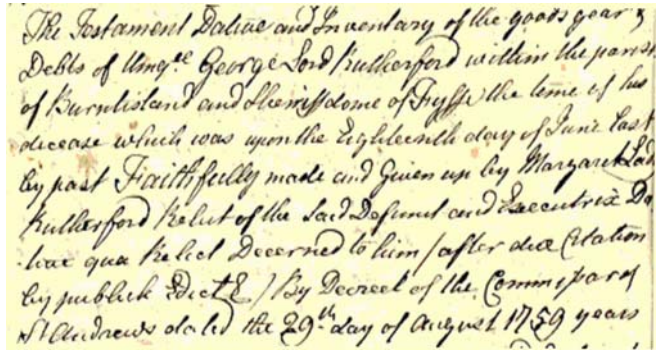 The Testament Dative and Inventary of the goods gear &
Debts of Umqll George Lord Rutherford within the parish
of Burntisland and Sherriffdome of Fyffe the time of his
decease which was upon the Eighteenth day of June last
by past Faithfully made and Given up by Margaret Lady
Rutherford Relict of the said Defunct and Executrix Da
tive qua Relict Decerned to him / after due Citation
by publick Edict / By Decreet of the Commissar of
St Andrews dated the 29th day of August 1759 years